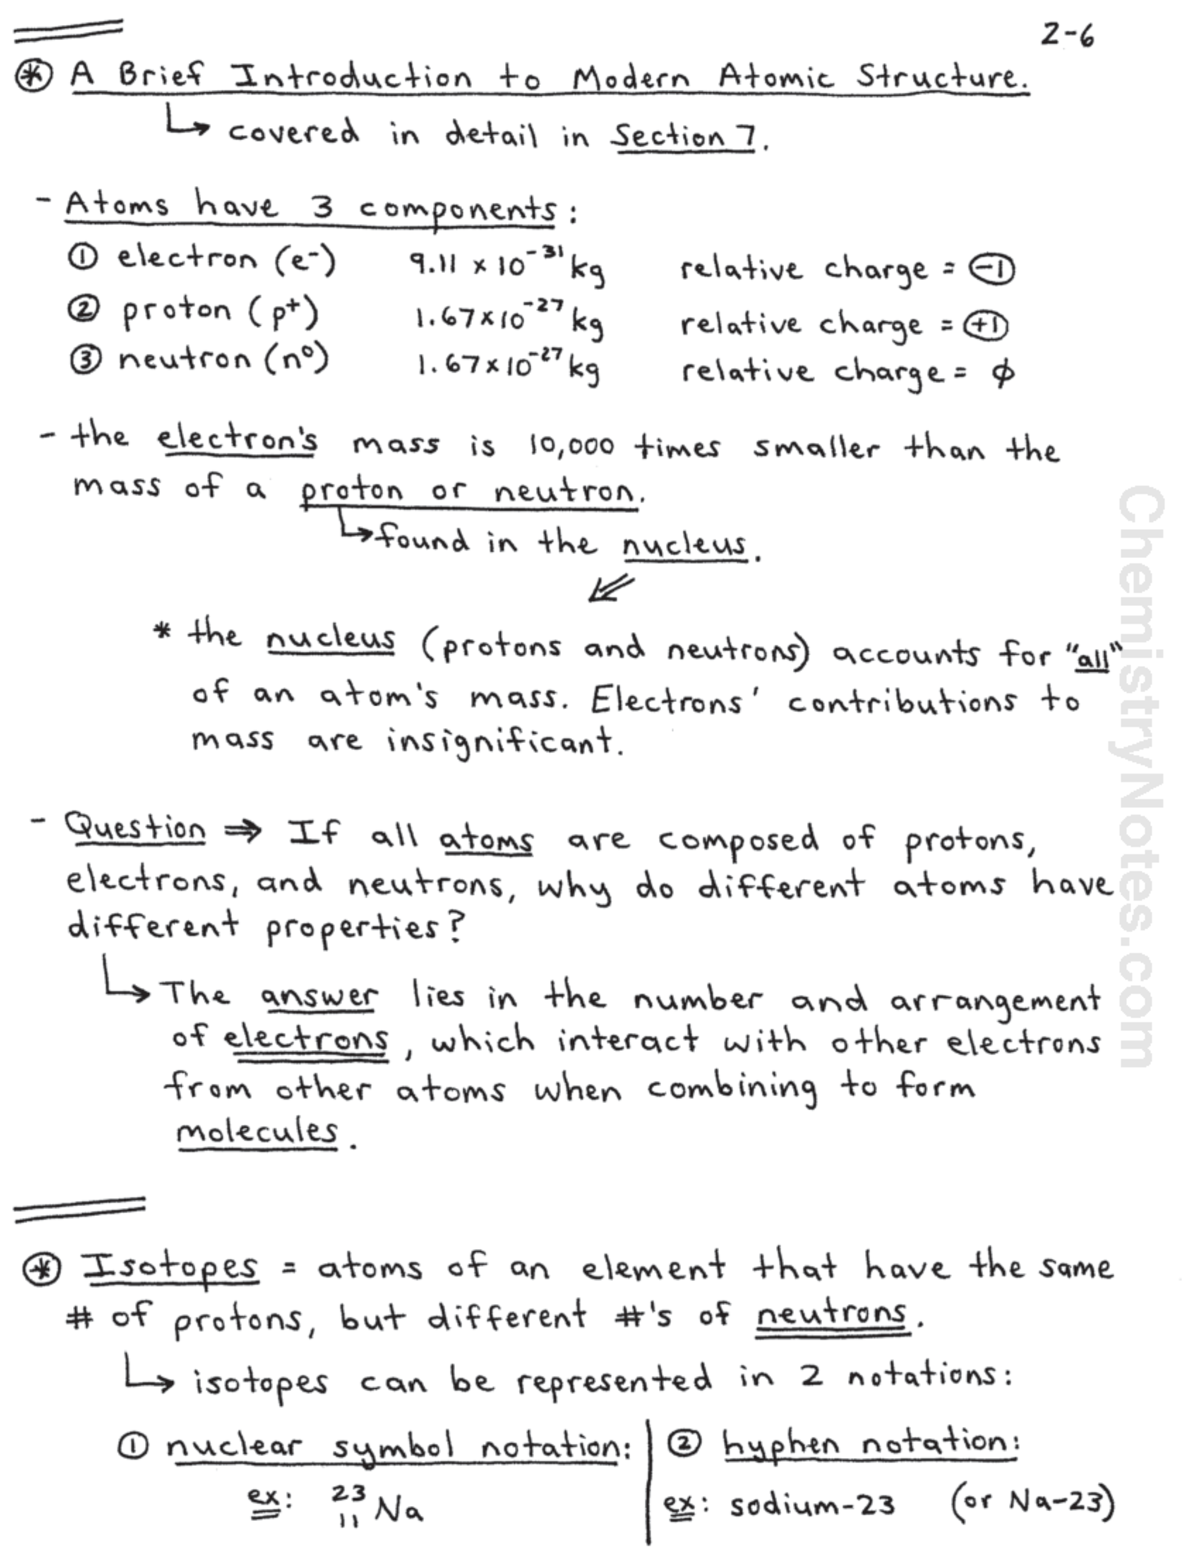 2-6
* A Brief Introduction to Modern Atomic Structure.
↳ covered in detail in Section 7.
- Atoms have 3 components:
① electron (e⁻) 9.11 × 10⁻³¹ kg relative charge = -1
② proton (p⁺) 1.67×10⁻²⁷ kg relative charge = +1
③ neutron (n⁰) 1.67×10⁻²⁷ kg relative charge = ϕ
- the electron's mass is 10,000 times smaller than the
mass of a proton or neutron.
↳ found in the nucleus.
* the nucleus (protons and neutrons) accounts for "all"
of an atom's mass. Electrons' contributions to
mass are insignificant.
- Question ⇒ If all atoms are composed of protons,
electrons, and neutrons, why do different atoms have
different properties?
↳ The answer lies in the number and arrangement
of electrons, which interact with other electrons
from other atoms when combining to form
molecules.
* Isotopes = atoms of an element that have the same
# of protons, but different #'s of neutrons.
↳ isotopes can be represented in 2 notations:
① nuclear symbol notation: ② hyphen notation:
ex: ²³₁₁Na ex: sodium-23 (or Na-23)
ChemistryNotes.com